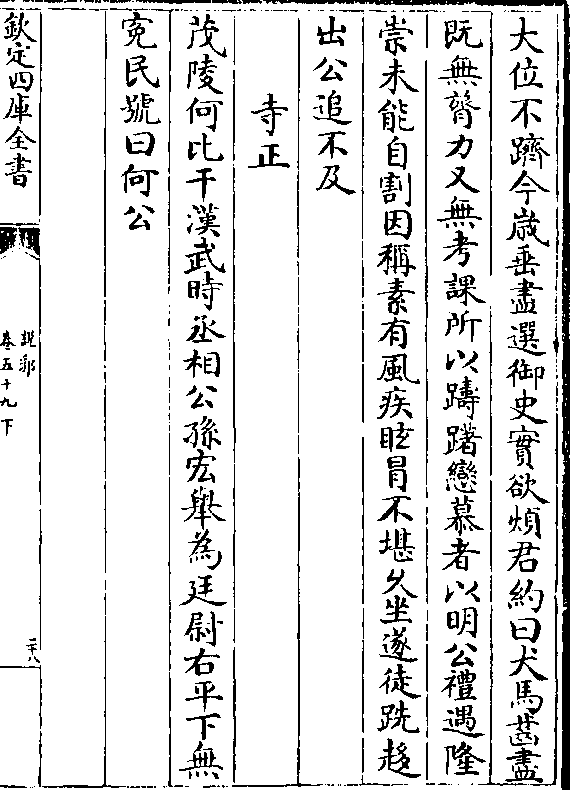 大位不躋今歲垂盡選御史實欲煩君約曰犬馬齒盡
既無膂力又無考課所以躊躇戀慕者以明公禮遇隆
崇未能自割因稱素有風疾眩冐不堪久坐遂徒跣趍
出公追不及
寺正
茂陵何比干漢武時丞相公孫宏舉為廷尉右平下無
寃民號曰何公
欽定四庫全書
說郛
卷五十九下
二十八